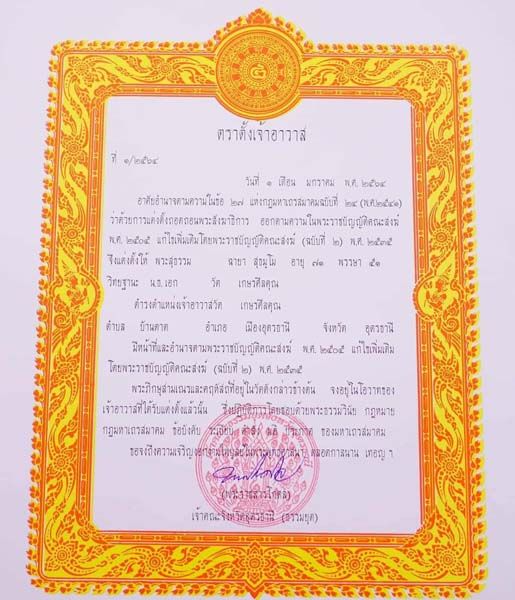 ตราตั้งเจ้าอาวาส
ที่ ๑/๒๕๖๔
วันที่ ๑ เดือน มกราคม พ.ศ. ๒๕๖๔
อาศัยอำนาจตามความในข้อ ๒๗ แห่งกฎมหาเถรสมาคมฉบับที่ ๒๔ (พ.ศ.๒๕๔๑)
ว่าด้วยการแต่งตั้งถอดถอนพระสังฆาธิการ ออกตามความในพระราชบัญญัติคณะสงฆ์
พ.ศ. ๒๕๐๕ แก้ไขเพิ่มเติมโดยพระราชบัญญัติคณะสงฆ์ (ฉบับที่ ๒) พ.ศ. ๒๕๓๕
จึงแต่งตั้งให้ พระสุธรรม ฉายา สุธมฺโม อายุ ๗๑ พรรษา ๕๑
วิทยฐานะ น.ธ.เอก วัด เกษรศีลคุณ
ดำรงตำแหน่งเจ้าอาวาสวัด เกษรศีลคุณ
ตำบล บ้านตาด อำเภอ เมืองอุดรธานี จังหวัด อุดรธานี
มีหน้าที่และอำนาจตามพระราชบัญญัติคณะสงฆ์ พ.ศ. ๒๕๐๕ แก้ไขเพิ่มเติม
โดยพระราชบัญญัติคณะสงฆ์ (ฉบับที่ ๒) พ.ศ. ๒๕๓๕
พระภิกษุสามเณรและคฤหัสถ์ที่อยู่ในวัดดังกล่าวข้างต้น จงอยู่ในโอวาทของ
เจ้าอาวาสที่ได้รับแต่งตั้งแล้วนั้น ซึ่งปฏิบัติการโดยชอบด้วยพระธรรมวินัย กฎหมาย
กฎมหาเถรสมาคม ข้อบังคับ ระเบียบ คำสั่ง มติ ประกาศ ของมหาเถรสมาคม
ขอจงถึงความเจริญงอกงามไพบูลย์ในพระพุทธศาสนา ตลอดกาลนาน เทอญ ฯ
(พระราชสารโกศล)
เจ้าคณะจังหวัดอุดรธานี (ธรรมยุต)